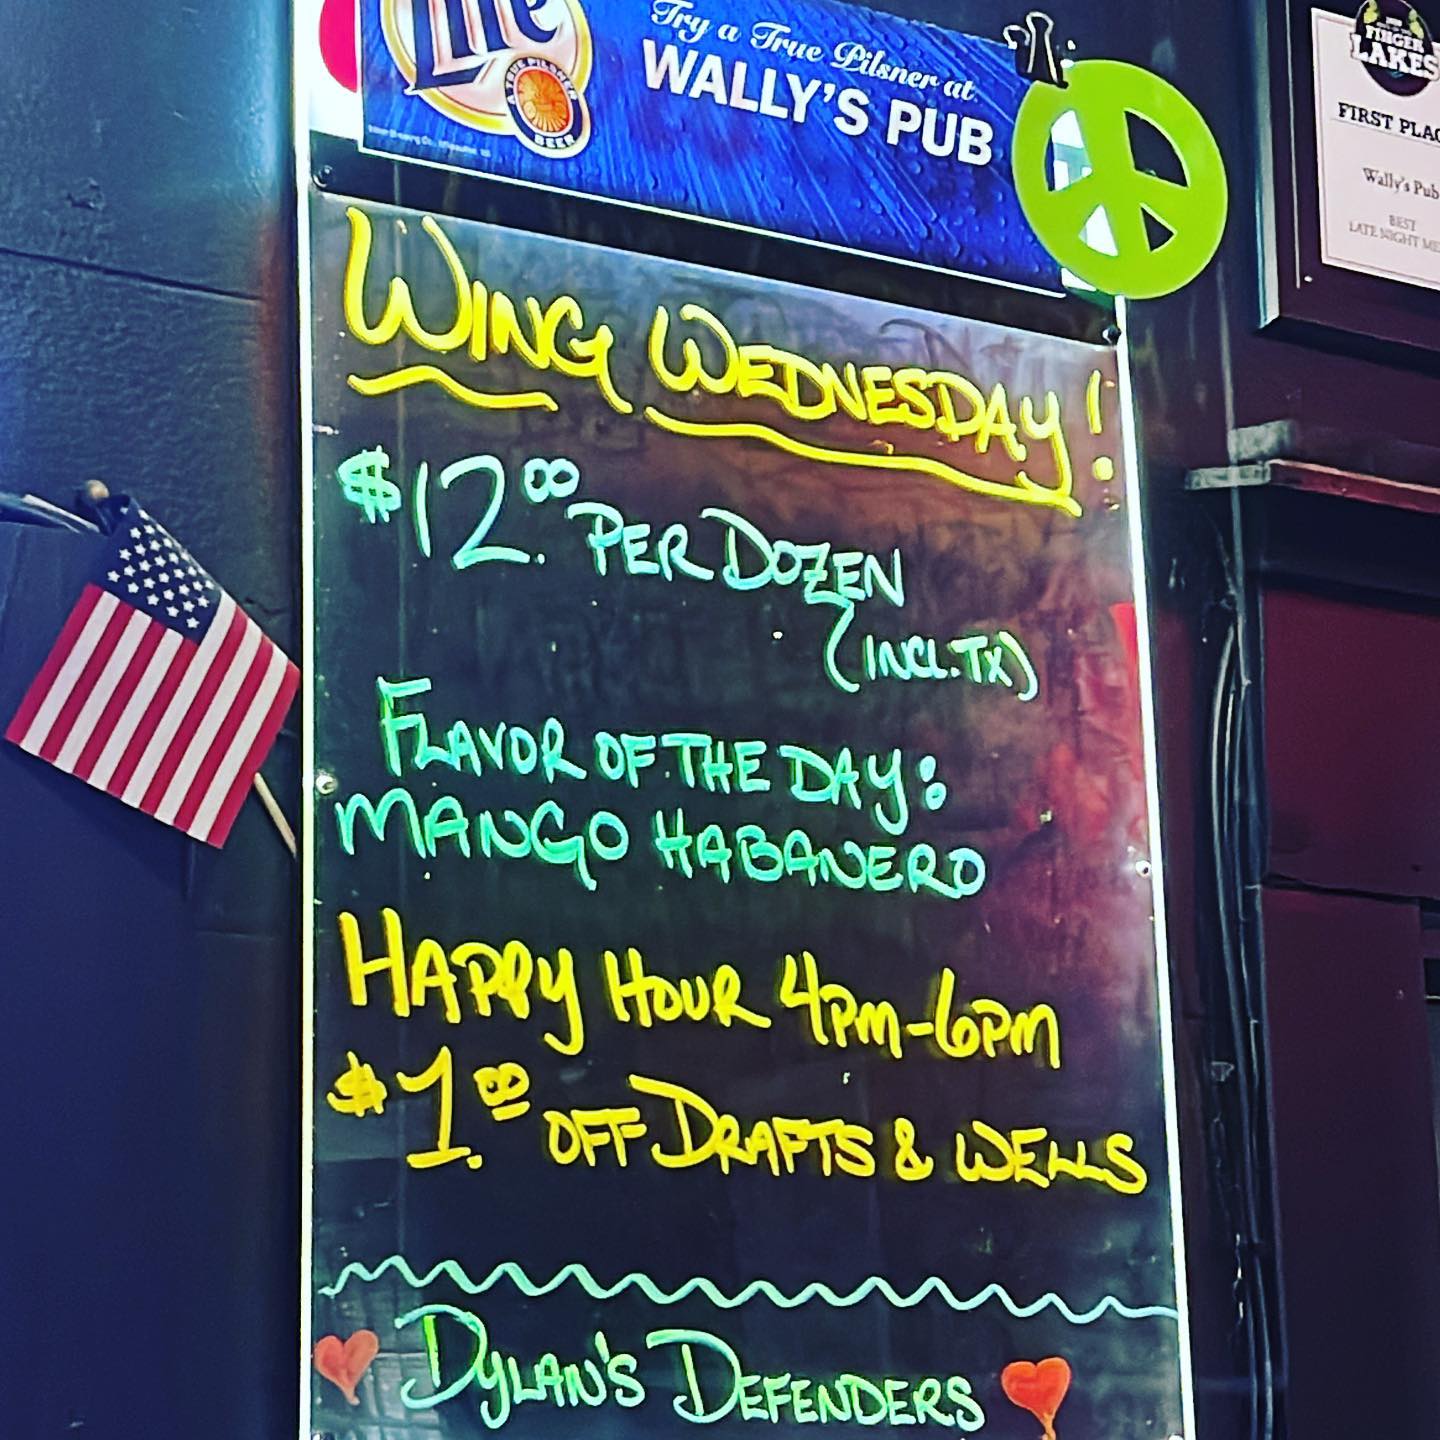 Lite
A TRUE PILSNER
BEER
Try a True Pilsner at
WALLY'S PUB
FINGER
LAKES
FIRST PLAC
Wally's Pub
BEST
LATE NIGHT ME
WING WEDNESDAY!
$12.00 PER DOZEN
(INCL. TX)
FLAVOR OF THE DAY:
MANGO HABANERO
HAPPY HOUR 4PM-6PM
$1.00 OFF DRAFTS & WELLS
DYLAN'S DEFENDERS